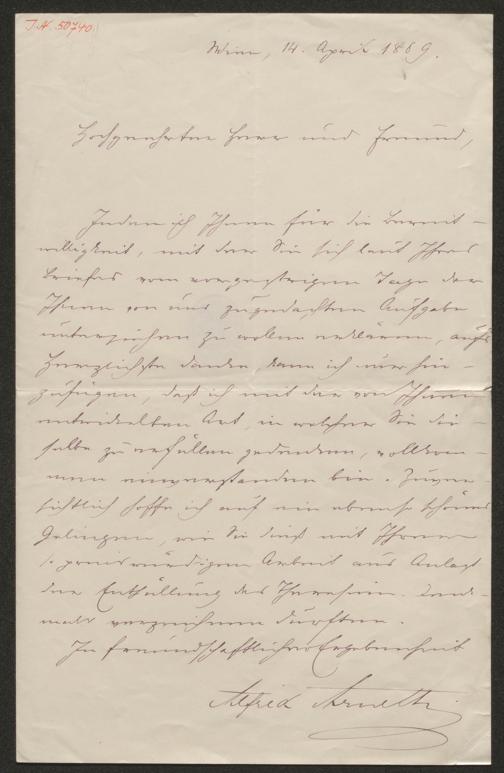 I. N. 50740.
Wien, 14. April 1889.
Hochgeehrter Herr und Freund,
Indem ich Ihnen für die Bereit-
willigkeit, mit der Sie sich laut Ihres
Briefes vom vorgestrigen Tage der
Ihnen von uns zugedachten Aufgabe
unterziehen zu wollen erklären, aufs
Herzlichste danke, kann ich nur hin-
zufügen, daß ich mit der von Ihnen
entwickelten Art, in welcher Sie die-
selbe zu erfüllen gedenken, vollkom-
men einverstanden bin. Zuver-
sichtlich hoffe ich auf ein ebenso schönes
Gelingen, wie Sie dieß mit Ihrer
so preiswürdigen Arbeit aus Anlaß
der Enthüllung des Theresien-Denk-
mals verzeichnen durften.
In freundschaftlicher Ergebenheit
Alfred Arneth